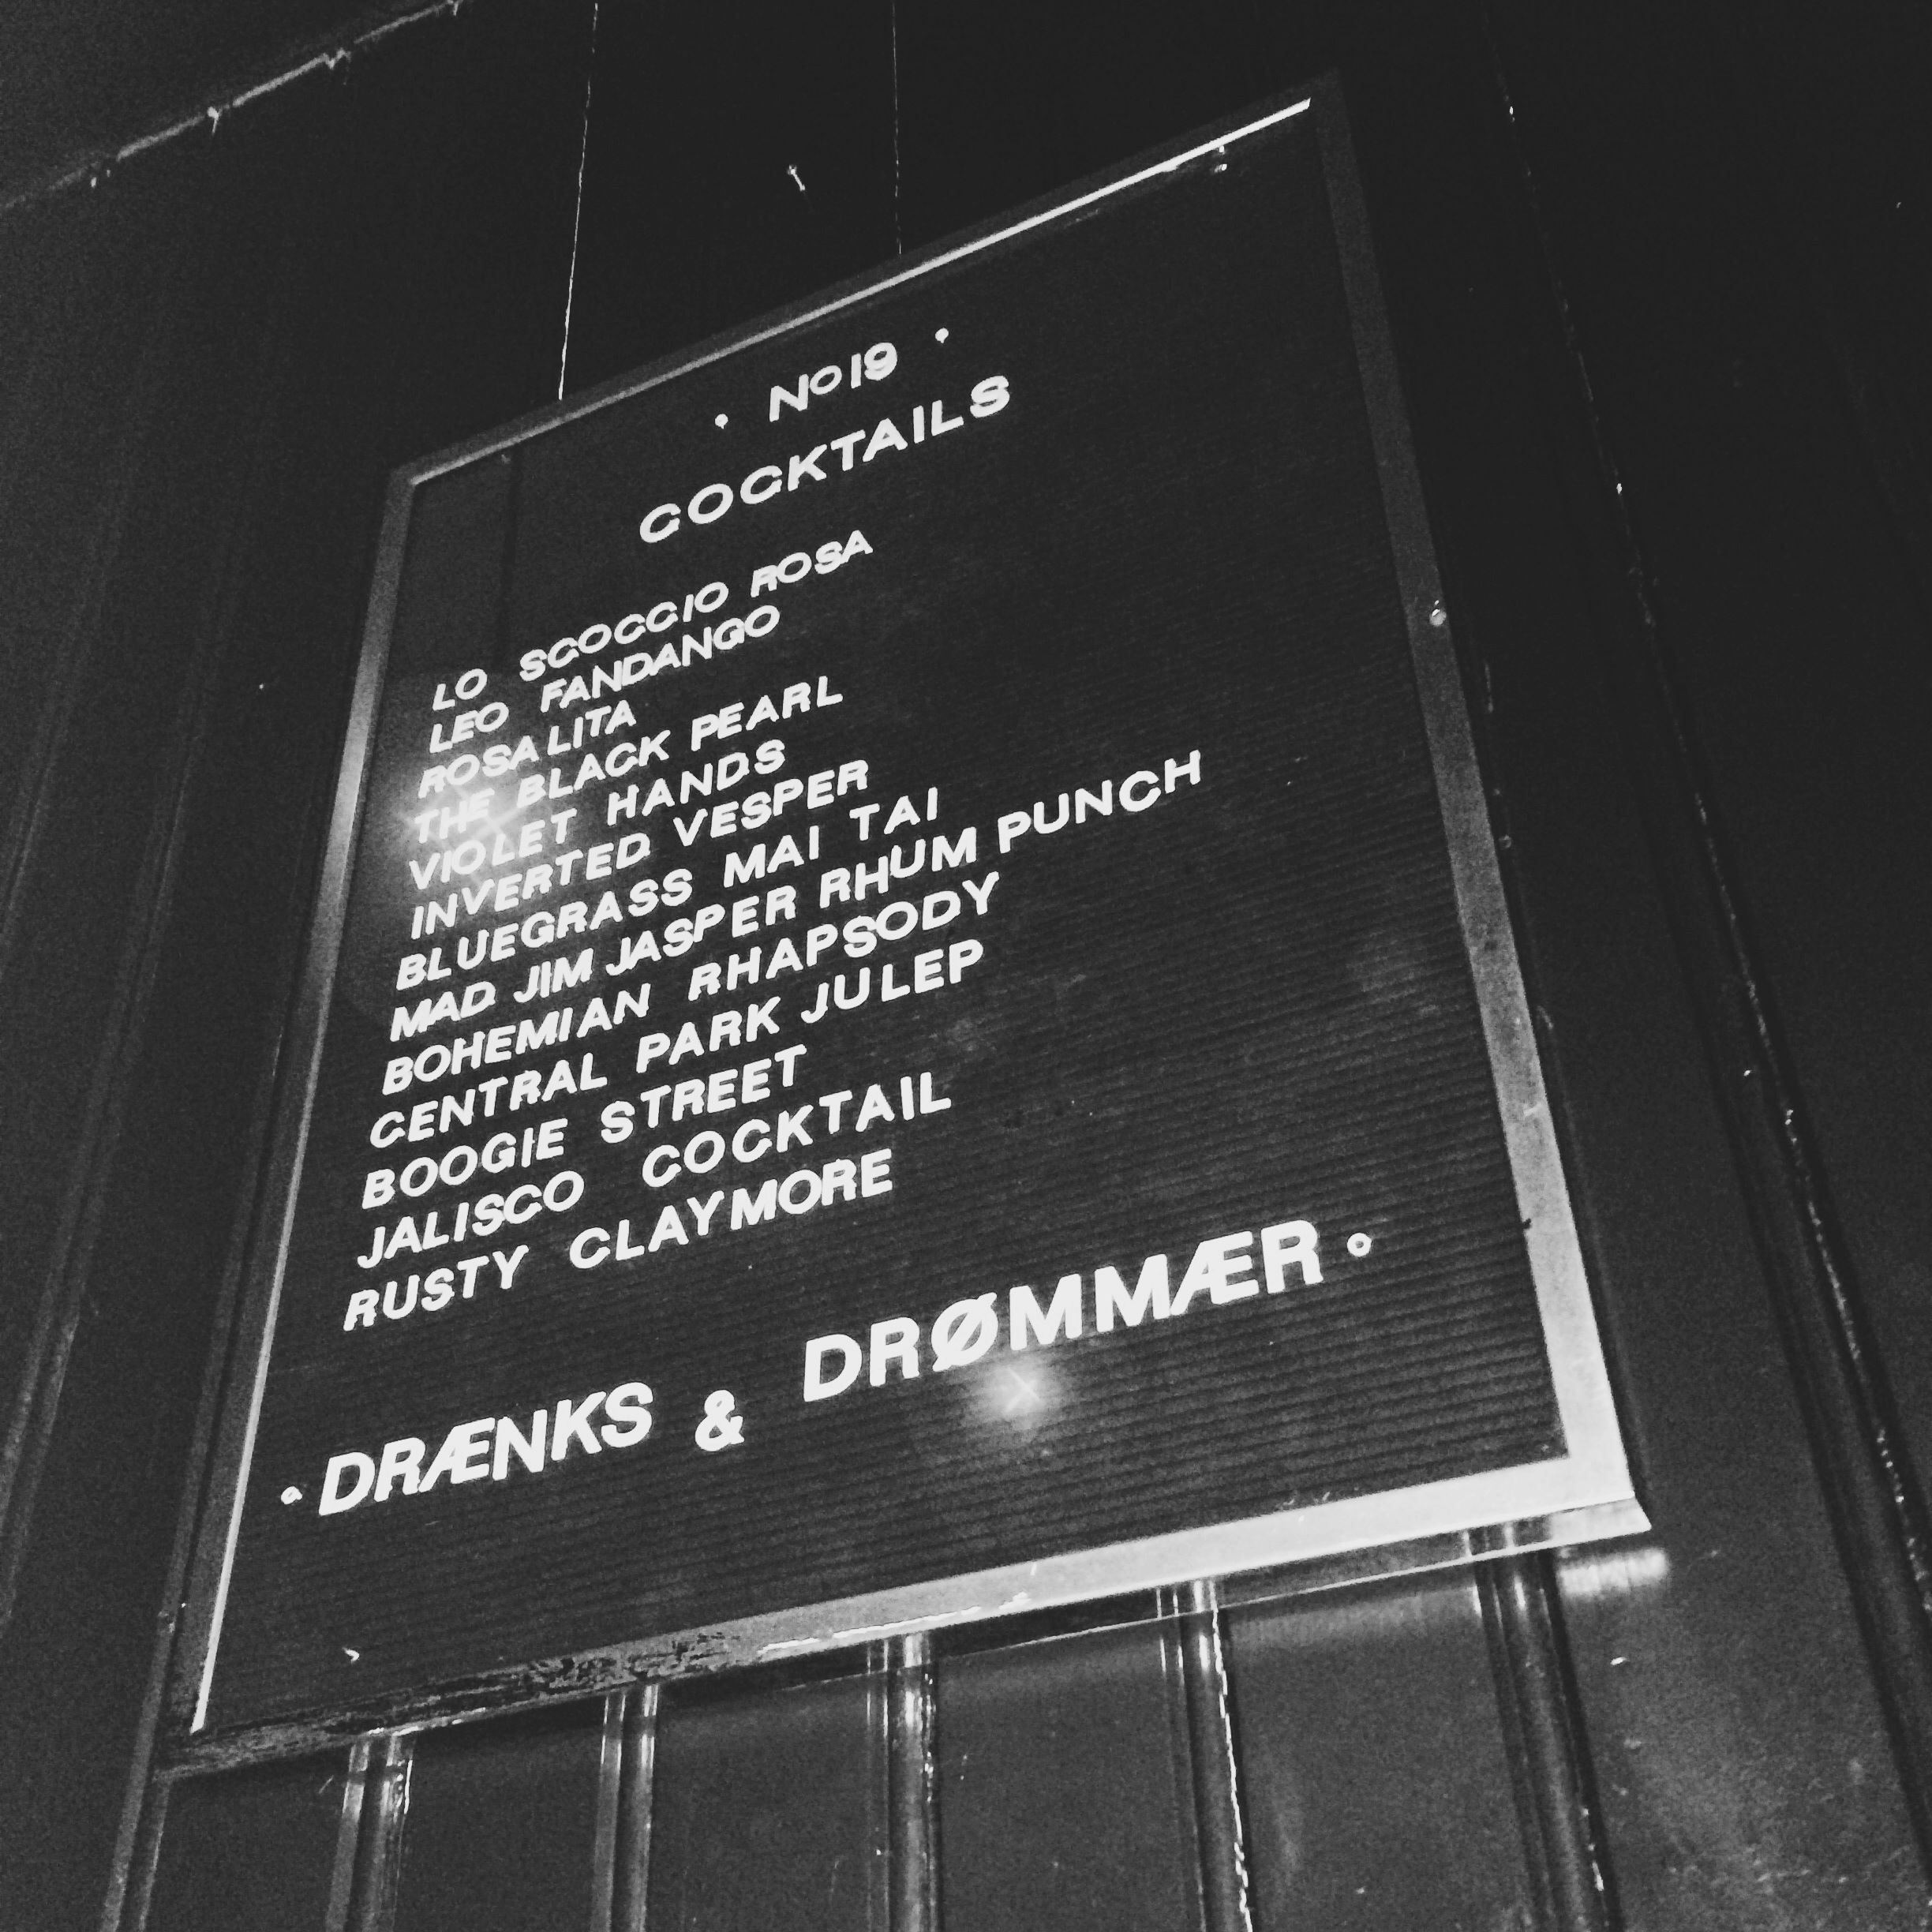 • No19 •
COCKTAILS
LO SCOCCIO ROSA
LEO FANDANGO
ROSALITA
THE BLACK PEARL
VIOLET HANDS
INVERTED VESPER
BLUEGRASS MAI TAI
MAD JIM JASPER RHUM PUNCH
BOHEMIAN RHAPSODY
CENTRAL PARK JULEP
BOOGIE STREET
JALISCO COCKTAIL
RUSTY CLAYMORE
° DRÆNKS & DRØMMÆR °